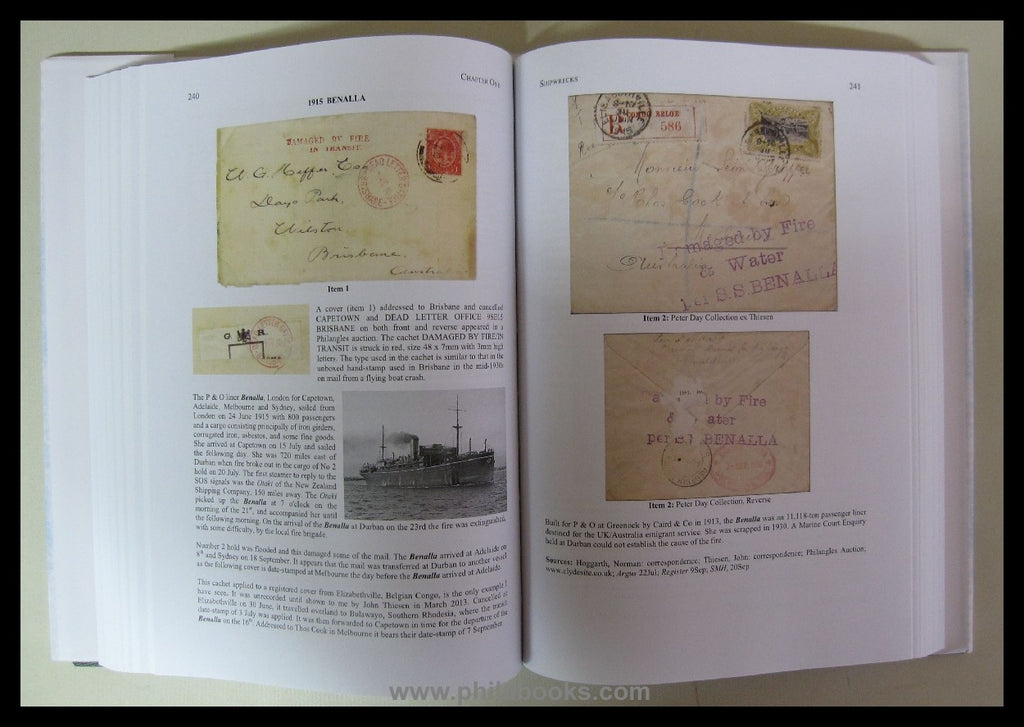 240
CHAPTER ONE
1915 BENALLA
DAMAGED BY FIRE
IN TRANSIT.
DEAD LETTER OFFICE
BRISBANE
W. G. Heffer Esq
Days Park,
Wilston
Brisbane.
Item 1
G. R.
A cover (item 1) addressed to Brisbane and cancelled
CAPETOWN and DEAD LETTER OFFICE 9SE15
BRISBANE on both front and reverse appeared in a
Philangles auction. The cachet DAMAGED BY FIRE/IN
TRANSIT is struck in red, size 48 x 7mm with 3mm high
letters. The type used in the cachet is similar to that in the
unboxed hand-stamp used in Brisbane in the mid-1930s
on mail from a flying boat crash.
The P & O liner Benalla, London for Capetown,
Adelaide, Melbourne and Sydney, sailed from
London on 24 June 1915 with 800 passengers
and a cargo consisting principally of iron girders,
corrugated iron, asbestos, and some fine goods.
She arrived at Capetown on 15 July and sailed
the following day. She was 720 miles east of
Durban when fire broke out in the cargo of No 2
hold on 20 July. The first steamer to reply to the
SOS signals was the Otaki of the New Zealand
Shipping Company, 150 miles away. The Otaki
picked up the Benalla at 7 o'clock on the
morning of the 21st, and accompanied her until
the following morning. On the arrival of the Benalla at Durban on the 23rd the fire was extinguished,
with some difficulty, by the local fire brigade.
Number 2 hold was flooded and this damaged some of the mail. The Benalla arrived at Adelaide on
8th and Sydney on 18 September. It appears that the mail was transferred at Durban to another vessel
as the following cover is date-stamped at Melbourne the day before the Benalla arrived at Adelaide.
This cachet applied to a registered cover from Elizabethville, Belgian Congo, is the only example I
have seen. It was unrecorded until shown to me by John Thiesen in March 2013. Cancelled at
Elizabethville on 30 June, it travelled overland to Bulawayo, Southern Rhodesia, where the transit
date-stamp of 3 July was applied. It was then forwarded to Capetown in time for the departure of the
Benalla on the 16th. Addressed to Thos Cook in Melbourne it bears their date-stamp of 7 September.
SHIPWRECKS
241
CONGO BELGE
586
Monsieur Léon
c/o Thos Cook & Son
Australia
Damaged by Fire
& Water
per S.S. BENALLA
Item 2: Peter Day Collection ex Thiesen
by Fire
&
per S. BENALLA
Item 2: Peter Day Collection, Reverse
Built for P & O at Greenock by Caird & Co in 1913, the Benalla was an 11,118-ton passenger liner
destined for the UK/Australia emigrant service. She was scrapped in 1930. A Marine Court Enquiry
held at Durban could not establish the cause of the fire.
Sources: Hoggarth, Norman: correspondence; Thiesen, John: correspondence; Philangles Auction;
www.clydesite.co.uk; Argus 22Jul; Register 9Sep; SMH, 20Sep
www.philabooks.com